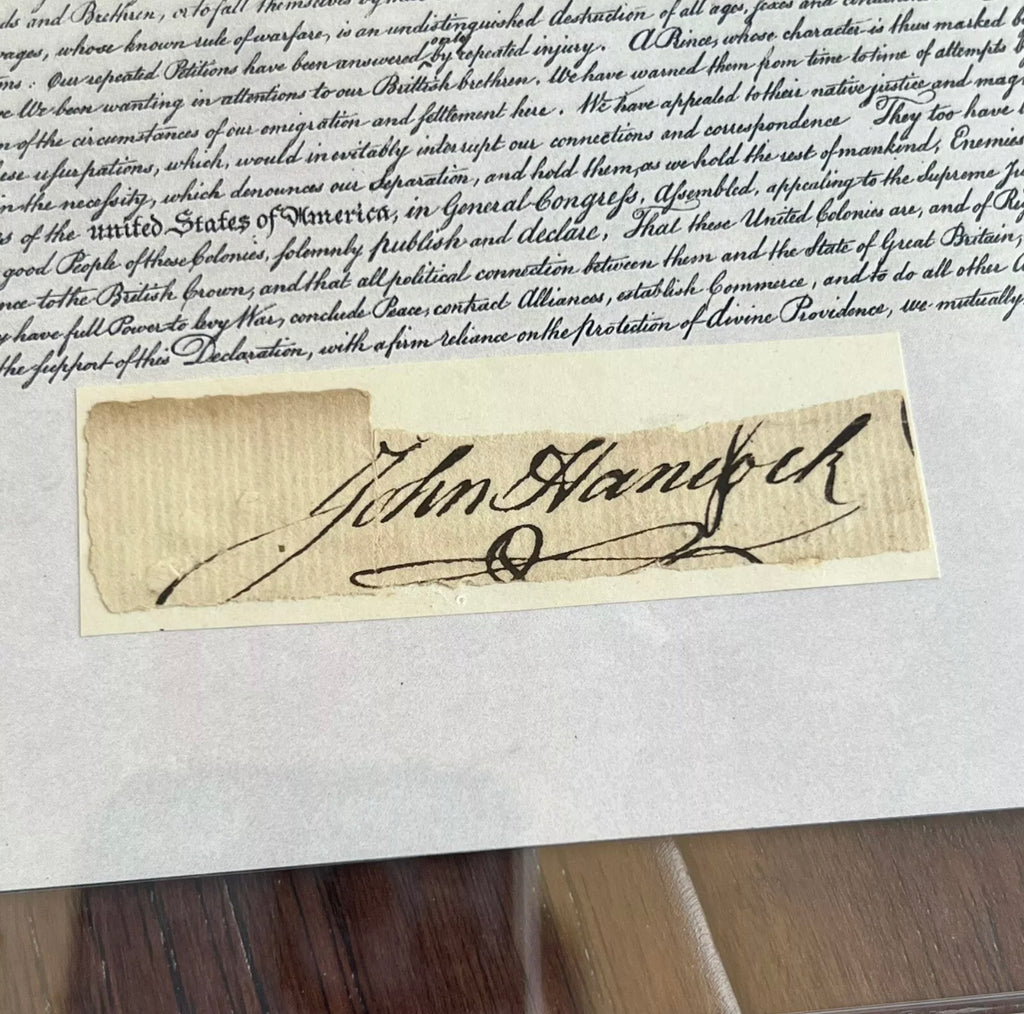 ds and Brethren, or to fall themselves by
vages, whose known rule of warfare, is an undistinguished destruction of all ages, sexes and
ms: Our repeated Petitions have been answered only by repeated injury. A Prince, whose character is thus marked b
e We been wanting in attentions to our Brittish brethren. We have warned them from time to time of attempts b
n of the circumstances of our emigration and settlement here. We have appealed to their native justice and mag
ese usurpations, which, would inevitably interrupt our connections and correspondence They too have
in the necessity, which denounces our Separation, and hold them, as we hold the rest of mankind, Enemies
s of the united States of America, in General Congress, Assembled, appealing to the Supreme Ju
good People of these Colonies, solemnly publish and declare, That these United Colonies are, and of Ri
nce to the British Crown, and that all political connection between them and the State of Great Britain,
y have full Power to levy War, conclude Peace, contract Alliances, establish Commerce, and to do all other A
the support of this Declaration, with a firm reliance on the protection of divine Providence, we mutually
John Hancock